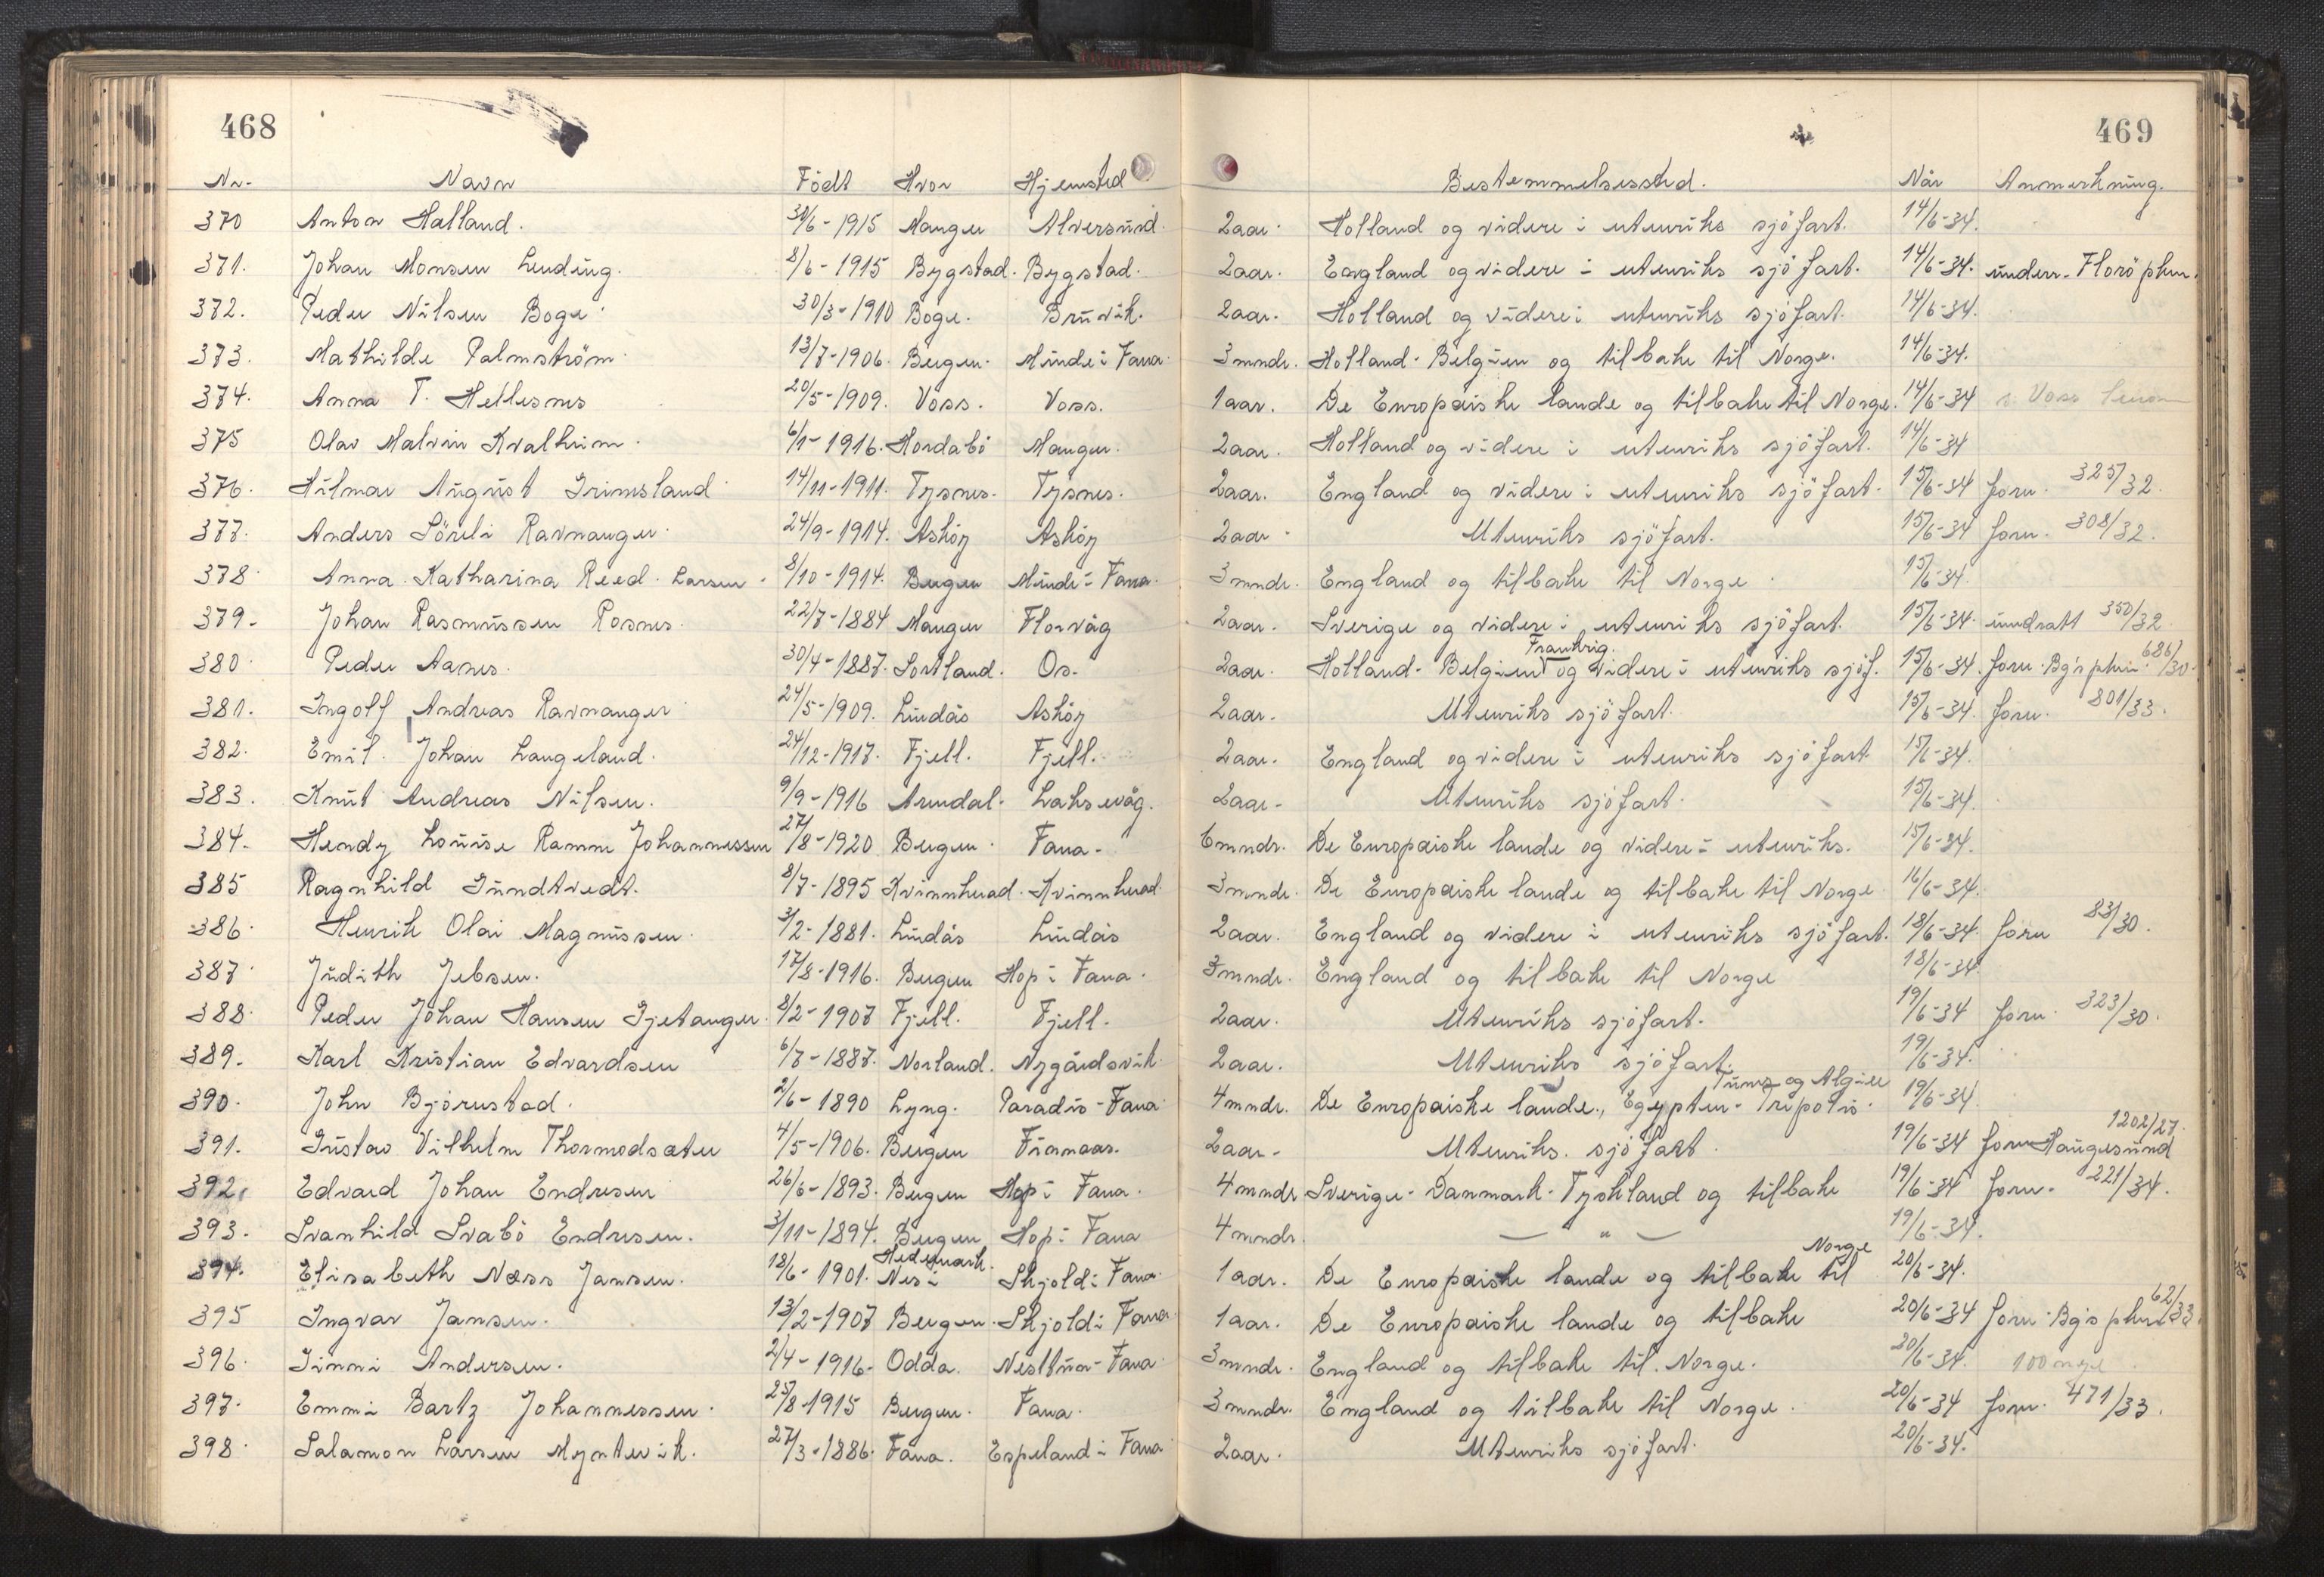 468
469
Nr. Navn Födt Hvor Hjemsted Bestemmelsessted. Når Anmerkning.
370 Anton Halland. /6-1915 Manger Alversund. 2aar. Holland og videre i utenriks sjöfart. 14/6-34.
371. Johan Monsen Lending. 8/6-1915 Bygstad. Bygstad. 2aar. England og videre i utenriks sjöfart. 14/6-34. underr. Florö pkm.
372. Peder Nilsen Boge. 30/3-1910 Boge. Bruvik. 2aar. Holland og videre i utenriks sjöfart. 14/6-34.
373. Mathilde Palmström. 13/7-1906. Bergen. Minde i Fana. 3mndr. Holland-Belgien og tilbake til Norge. 14/6-34.
374. Anna T. Hellesnes 20/5-1909. Voss. Voss. 1aar. De Europæiske lande og tilbake til Norge. 14/6-34 Voss
375 Olav Malvin Kvalheim. 6/1-1916. Hordabö Manger. 2aar. Holland og videre i utenriks sjöfart. 14/6-34
376. Hilmar August Grimsland 14/11-1911. Tysnes. Tysnes. 2aar. England og videre i utenriks sjöfart. 15/6-34 forn. 325/32.
377. Anders Söreli Ravnanger. 24/9-1914. Asköy Asköy 2aar. Utenriks sjöfart. 15/6-34 forn. 308/32.
378. Anna Katharina Reed-Larsen. 8/10-1914. Bergen Minde i Fana. 3mndr. England og tilbake til Norge. 15/6-34.
379. Johan Rasmussen Rosnes. 22/7-1884 Manger Florvåg 2aar. Sverige og videre i utenriks sjöfart. 15/6-34. undratt 350/32
380. Peder Aanes. 30/4-1887. Sortland. Os. 2aar. Holland-Belgien Frankrig. og videre i utenriks sjöf. 15/6-34. forn. Bg's pkm. 686/30.
381. Ingolf Andreas Ravnanger 24/5-1909. Lindås Asköy 2aar. Utenriks sjöfart. 15/6-34. forn. 801/33.
382. Emil Johan Langeland. 24/12-1917. Fjell. Fjell. 2aar. England og videre i utenriks sjöfart. 15/6-34.
383. Knut Andreas Nilsen. 9/9-1916 Arendal. Laksevåg. 2aar. Utenriks sjöfart. 15/6-34.
384. Hendy Louise Ramm Johannessen 27/8-1920 Bergen. Fana. 6mndr. De Europæiske lande og videre i utenriks. 15/6-34.
385 Ragnhild Gundtvedt. 8/7-1895 Kvinnherad. Kvinnherad. 3mndr. De Europæiske lande og tilbake til Norge 16/6-34.
386. Henrik Olai Magnussen. 3/2-1881. Lindås Lindås 2aar. England og videre i utenriks sjöfart. 18/6-34. forn 83/30.
387. Judith Jebsen. 17/8-1916. Bergen Hop i Fana. 3mndr. England og tilbake til Norge 18/6-34.
388. Peder Johan Hansen Gjetanger. 8/2-1907 Fjell. Fjell. 2aar. Utenriks sjöfart. 19/6-34 forn. 323/30.
389. Karl Kristian Edvardsen 6/7-1887. Norland. Nygårdsvik. 2aar. Utenriks sjöfart. 19/6-34.
390. John Björnstad. 2/6-1890 Lyng. Paradis-Fana 4mndr. De Europæiske lande, Egypten-Tripolis. Tunis og Algier 19/6-34
391. Gustav Vilhelm Thormodsæter 4/5-1906. Bergen Finnaas. 2aar. Utenriks. sjöfart. 19/6-34 forn Haugesund 1202/27.
392. Edvard Johan Endresen 26/6-1893. Bergen Hop i Fana. 4mndr Sverige-Danmark-Tyskland og tilbake 19/6-34 forn. 221/34.
393. Svanhild Svabö Endresen. 3/11-1894. Bergen Hop i Fana 4mndr. — " — 19/6-34.
394. Elisabeth Næss Jansen. 18/6-1901. Nes i Hedemark. Skjold i Fana. 1aar. De Europæiske lande og tilbake til Norge 20/6-34.
395 Ingvar Jansen. 13/2-1907 Bergen. Skjold i Fana. 1aar. De Europæiske lande og tilbake 20/6-34 forn. Bg's pkm. 62/33.
396. Jinni Andersen. 2/4-1916. Odda. Nesttun-Fana. 3mndr. England og tilbake til Norge. 20/6-34. 100
397. Emmi Bartz Johannessen. 25/8-1915 Bergen. Fana. 3mndr. England og tilbake til Norge. 20/6-34 forn. 471/33.
398. Salamon Larsen Myntevik. 27/3-1886. Fana. Espeland i Fana 2aar. Utenriks sjöfart. 20/6-34.